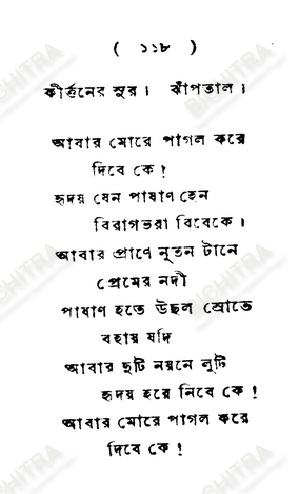 ( ১১৮ )
কীর্ত্তনের সুর। ঝাঁপতাল।
আবার মোরে পাগল করে
দিবে কে!
হৃদয় যেন পাষাণ হেন
বিরাগভরা বিবেকে।
আবার প্রাণে নূতন টানে
প্রেমের নদী
পাষাণ হতে উছল স্রোতে
বহায় যদি
আবার দুটি নয়নে লুটি
হৃদয় হরে নিবে কে!
আবার মোরে পাগল করে
দিবে কে!
BICHITRA
BICHITRA
BICHITRA
BICHITRA